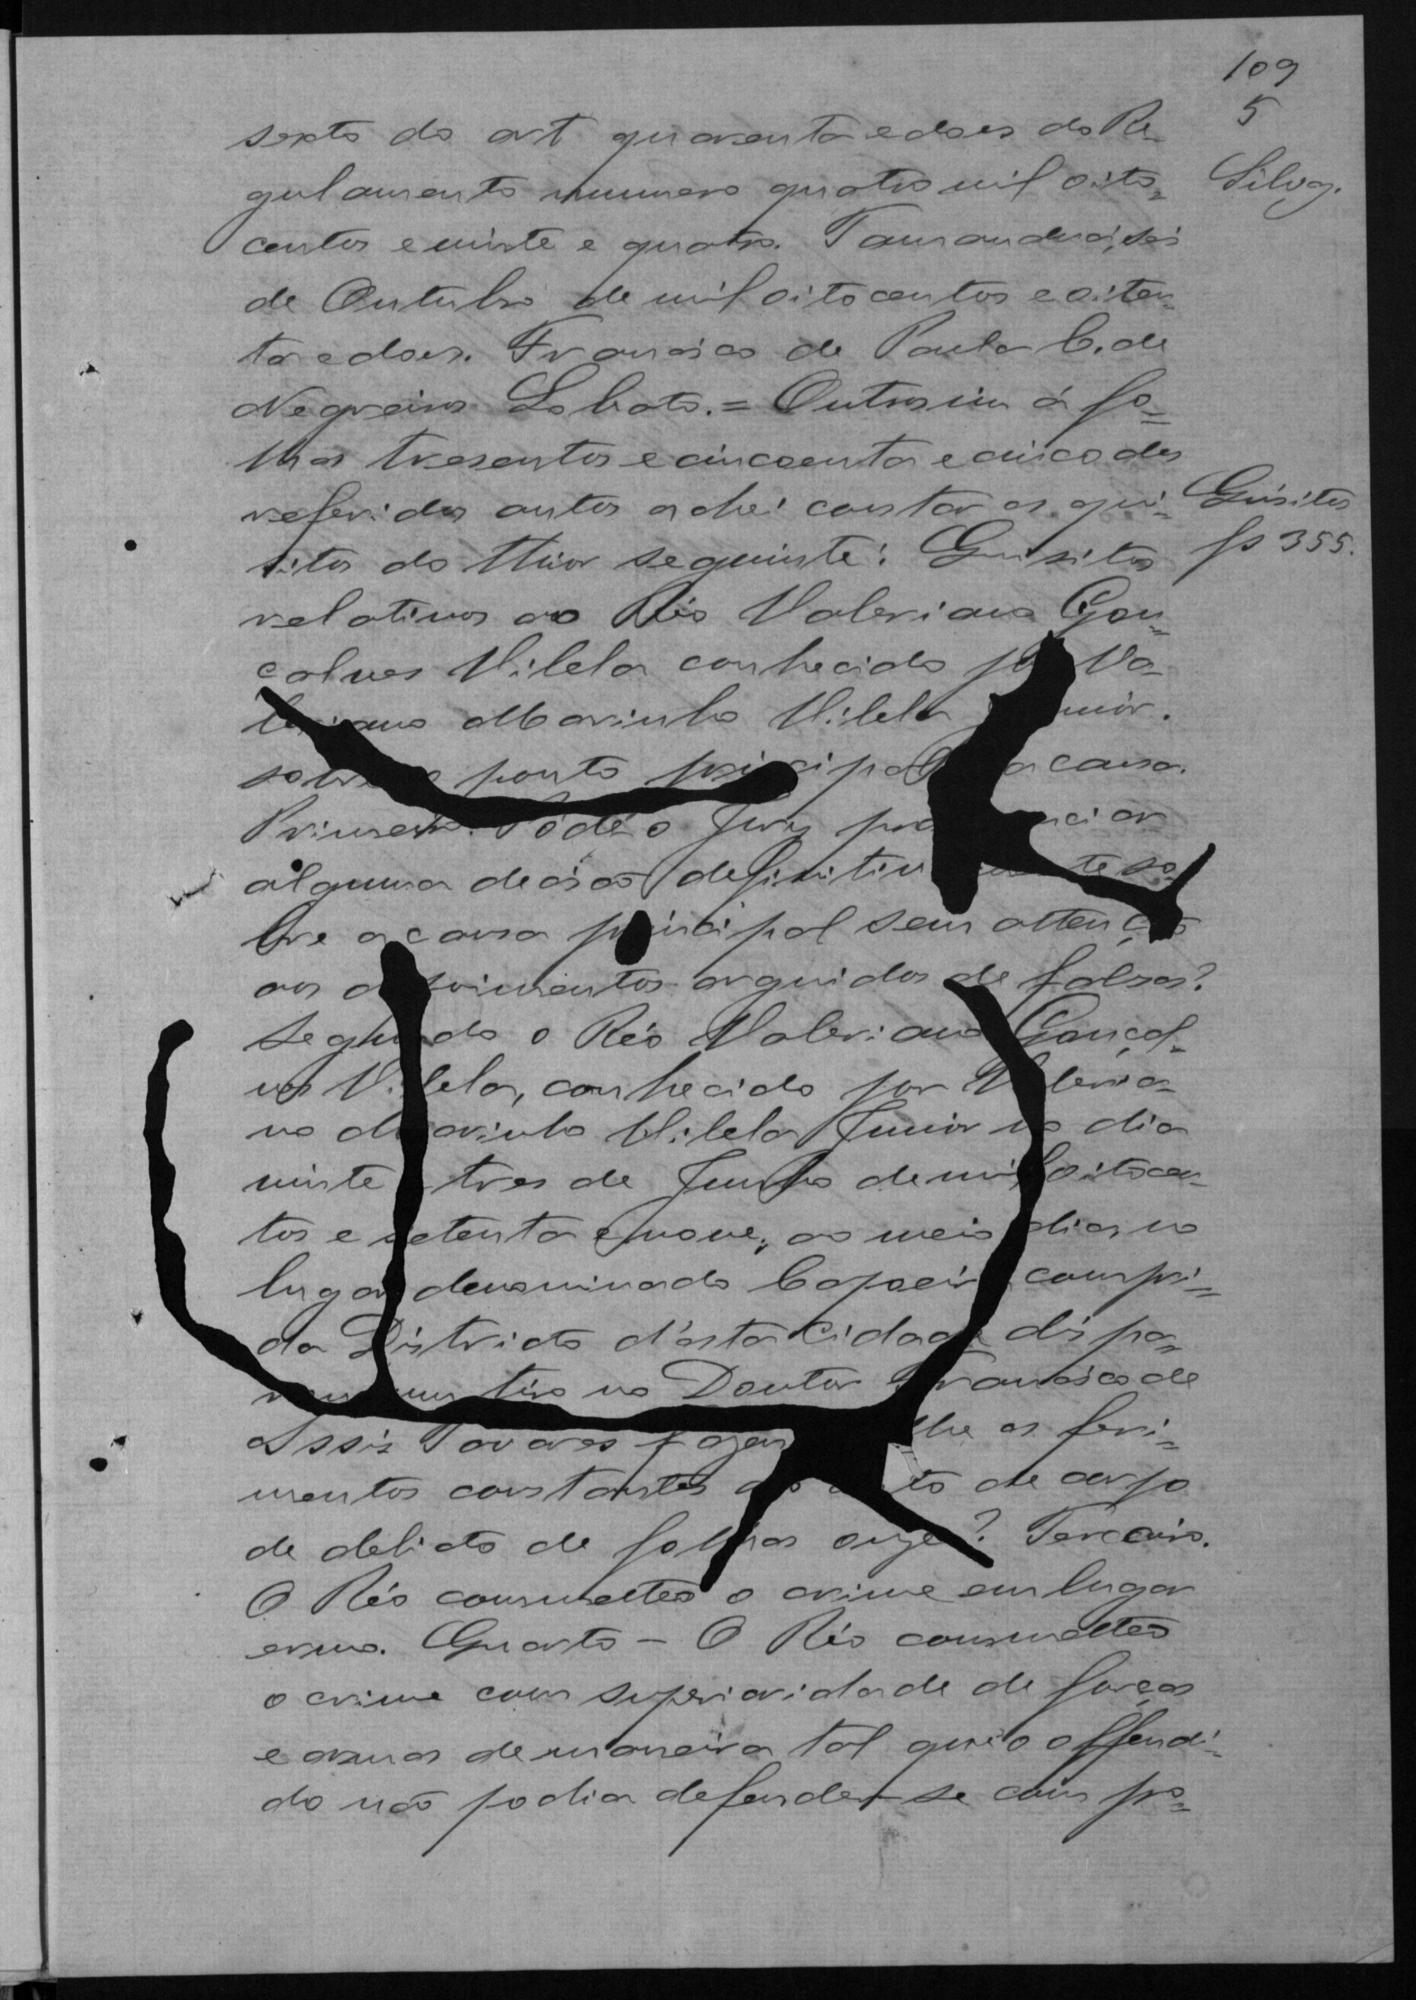 109
5
Silvº.
sexto do art quarenta e does do Re-
gulamento numero quatro mil oito-
centos e vinte e quatro. Tamanduá, seis
de Outubro de mil oito centos e oiten-
ta e does. Francisco de Paula C. de
Negreiros Lobato. = Outrosim á fo=
lhas tresentos e cincoenta e cinco dos
referidos autos achei constar os qui-
sitos do thior seguinte: Quisitos
Quisitos
fs 355.
relativos ao Réo Valeriano Gon-
calves Vilela conhecido por Va-
leriano Marinho Vilela Junior.
sobre o ponto principal da causa.
Primeiro. Póde o Jury pronunciar
alguma decisão definitivamente so-
bre a causa principal sem attenção
aos depoimentos arguidos de falsos?
Segundo o Réo Valeriano Gonçal-
ves Vilela, conhecido por Valeria-
no Marinho Vilela Junior no dia
vinte e tres de Junho de mil oitocen-
tos e setenta e nove, ao meio dia, no
lugar denominado Capoeira compri=
da Districto d'esta Cidade dispa-
rou um tiro no Doutor Francisco de
Assis Tavares fazendo-lhe os feri-
mentos constantes do auto de corpo
de delicto de folhas onze? Terceiro.
O Réo commetteo o crime em lugar
ermo. Quarto - O Réo commetteo
o crime com superioridade de forças
e armas de maneira tal que o offendi-
do não podia defender-se com pro=